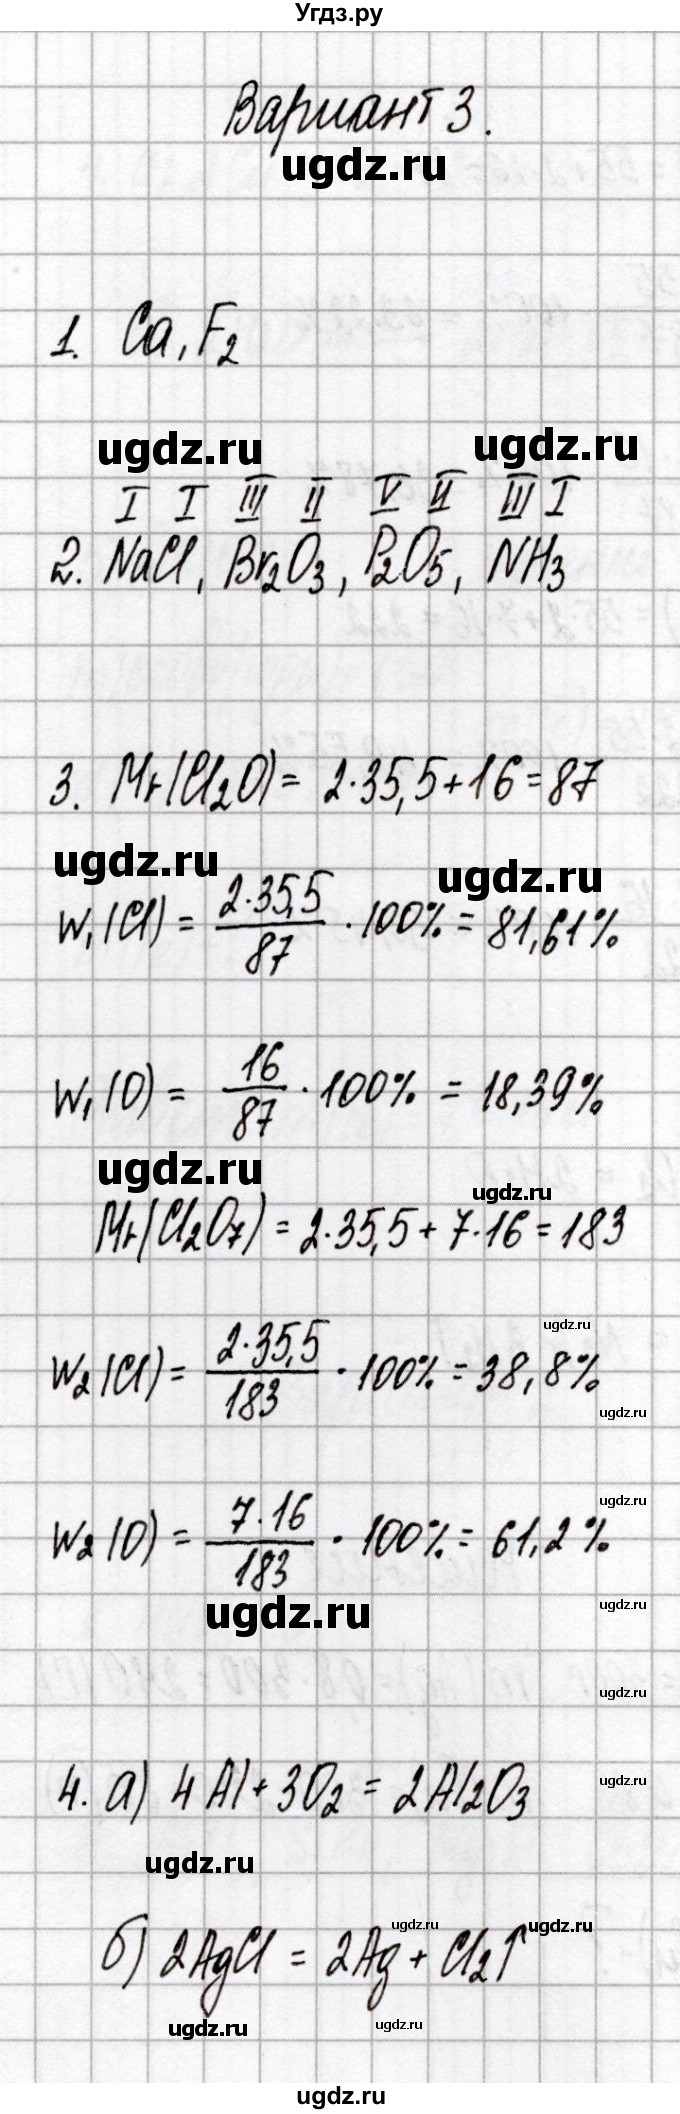 Угдз.ру
Вариант 3.
ugdz.ru
1. Ca, F₂
ugdz.ru ugdz.ru
I I III II V II III I
2. NaCl, Br₂O₃, P₂O₅, NH₃
3. Mr(Cl₂O) = 2·35,5+16=87
ugdz.ru ugdz.ru
W₁(Cl) = 2·35,5/87 · 100% = 81,61%
W₁(O) = 16/87 · 100% = 18,39%
ugdz.ru ugdz.ru
Mr(Cl₂O₇) = 2·35,5+7·16=183
ugdz.ru
W₂(Cl) = 2·35,5/183 · 100% = 38,8%
ugdz.ru
ugdz.ru
W₂(O) = 7·16/183 · 100% = 61,2%
ugdz.ru ugdz.ru
ugdz.ru
ugdz.ru
4. а) 4Al+3O₂ = 2Al₂O₃
ugdz.ru
ugdz.ru ugdz.ru
б) 2AgCl = 2Ag + Cl₂↑
ugdz.ru ugdz.ru
ugdz.ru